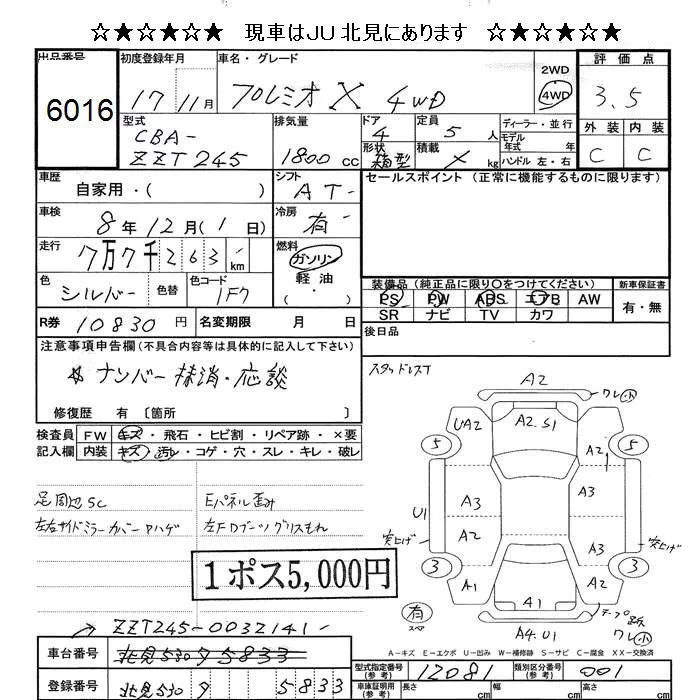 ☆★☆★☆★ 現車はJU北見にあります ☆★☆★☆★
出品番号 6016
初度登録年月 17年 11月
車名・グレード プレミオ X 4WD
2WD
4WD
評価点 3.5
外装 内装
C C
型式 CBA-
ZZT245
排気量 1800 cc
ドア 4
定員 5 人
形状 箱型
積載 × kg
ディーラー・並行
モデル年式 年式
ハンドル 左・右
車歴 自家用・( )
シフト AT-
セールスポイント (正常に機能するものに限ります)
車検 8年 12月 (1日)
冷房 有
走行 7万7千263 km
燃料 ガソリン
軽油
( )
色 シルバー 色替
色コード 1F7
装備品 (純正品に限り○をつけてください) 新車保証書
PS PW ABS エアB AW 有・無
SR ナビ TV カワ
R券 10830 円 名変期限 月 日
後日品
スタッドレスT
注意事項申告欄 (不具合内容等は具体的に記入して下さい)
ナンバー抹消・応談
修復歴 有 〔箇所 〕
検査員 記入欄
FW キズ・飛石・ヒビ割・リペア跡・×要
内装 キズ・汚レ・コゲ・穴・スレ・キレ・破レ
足周辺SC Eパネル歪み
左右サイドミラーカバーAハゲ 左FDブーツグリスもれ
1ポス5,000円
A2 ワレ小
UA2 A2.S1 A2
5 5
A3 A3
U1
A2 A3
突上げ 突上げ
3 3
A1 A2
A1
有 スペア
A4.U1 ワレ小
A-キズ E-エクボ U-凹み W-補修跡 S-サビ C-腐食 XX-交換済
ZZT245-0032141-
車台番号 北見530タ5833
登録番号 北見530タ 5833
型式指定番号 12081 類別区分番号 001
車庫証明用(参考) 長さ cm 幅 cm 高さ cm